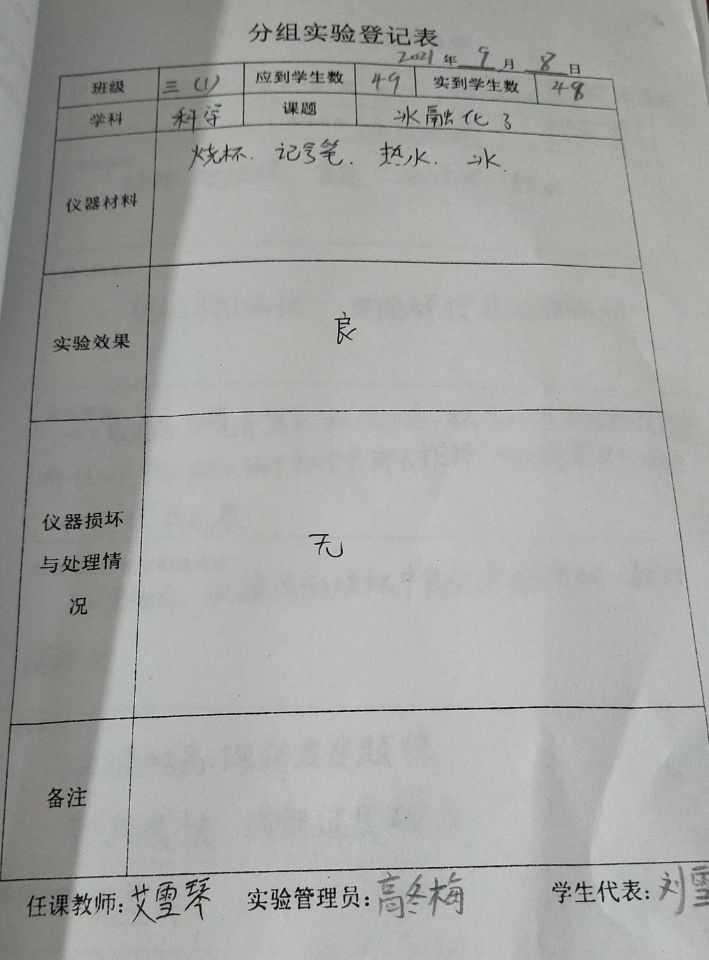 分组实验登记表
2021年 9 月 8 日
班级 三(1) 应到学生数 49 实到学生数 48
学科 科学 课题 冰融化了
仪器材料 烧杯. 记号笔. 热水. 冰.
实验效果 良
仪器损坏
与处理情
况
无
备注
任课教师:艾雪琴 实验管理员:高冬梅 学生代表:刘雪